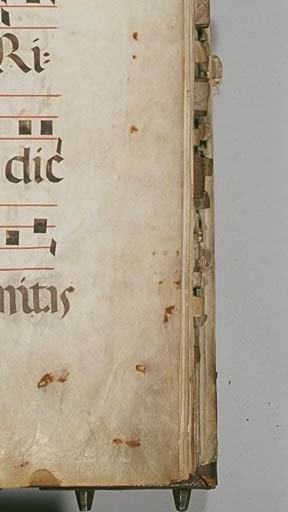 Ri:
dic
mitis